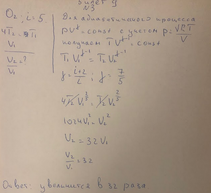 Задача 9
№3
O₂, i=5
4T₂ = T₁
V₁
V₂/V₁ = ?
Для адиабатического процесса
pV^γ = const с учетом p = νRT/V
получаем TV^(γ-1) = const
T₁V₁^(γ-1) = T₂V₂^(γ-1)
γ = (i+2)/i ; γ = 7/5
1024V₁² = V₂²
V₂ = 32V₁
V₂/V₁ = 32
Ответ: увеличится в 32 раза